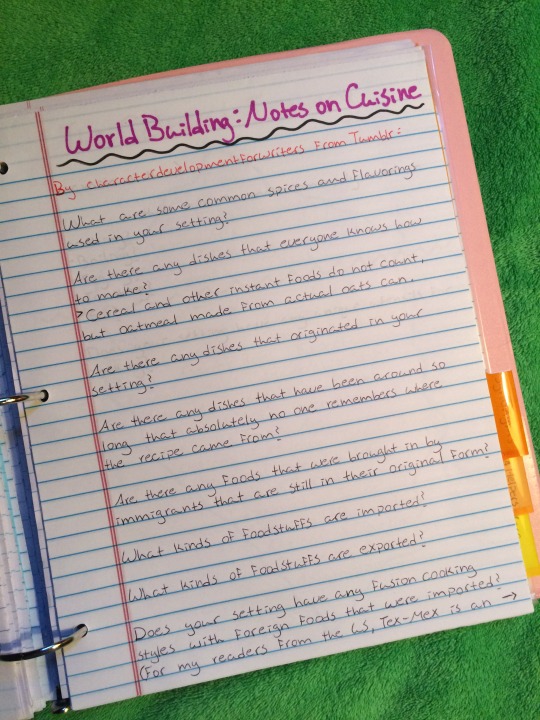 World Building: Notes on Cuisine
By characterdevelopmentforwriters From Tumblr:
What are some common spices and flavorings
used in your setting?
Are there any dishes that everyone knows how
to make?
>Cereal and other instant foods do not count,
but oatmeal made from actual oats can.
Are there any dishes that originated in your
setting?
Are there any dishes that have been around so
long that absolutely no one remembers where
the recipe came from?
Are there any foods that were brought in by
immigrants that are still in their original form?
What kinds of foodstuffs are imported?
What kinds of foodstuffs are exported?
Does your setting have any fusion cooking
styles with foreign foods that were imported?
(For my readers from the US, Tex-Mex is an →